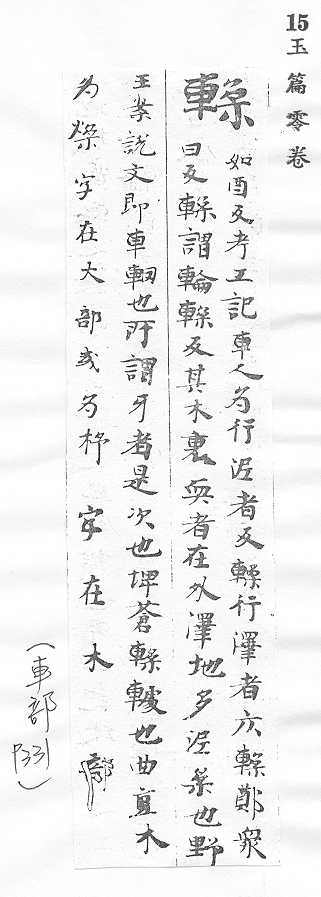 15玉篇零卷
輮
如酉反考工記車人為行泥者反輮行澤者仄輮鄭衆
曰反輮謂輪輮反其木裏耎者在外澤地多泥柔也野
王案說文即車輞也所謂牙者是次也埤蒼輮也曲直木
為煣字在火部或為字在木部
(車部 P331)